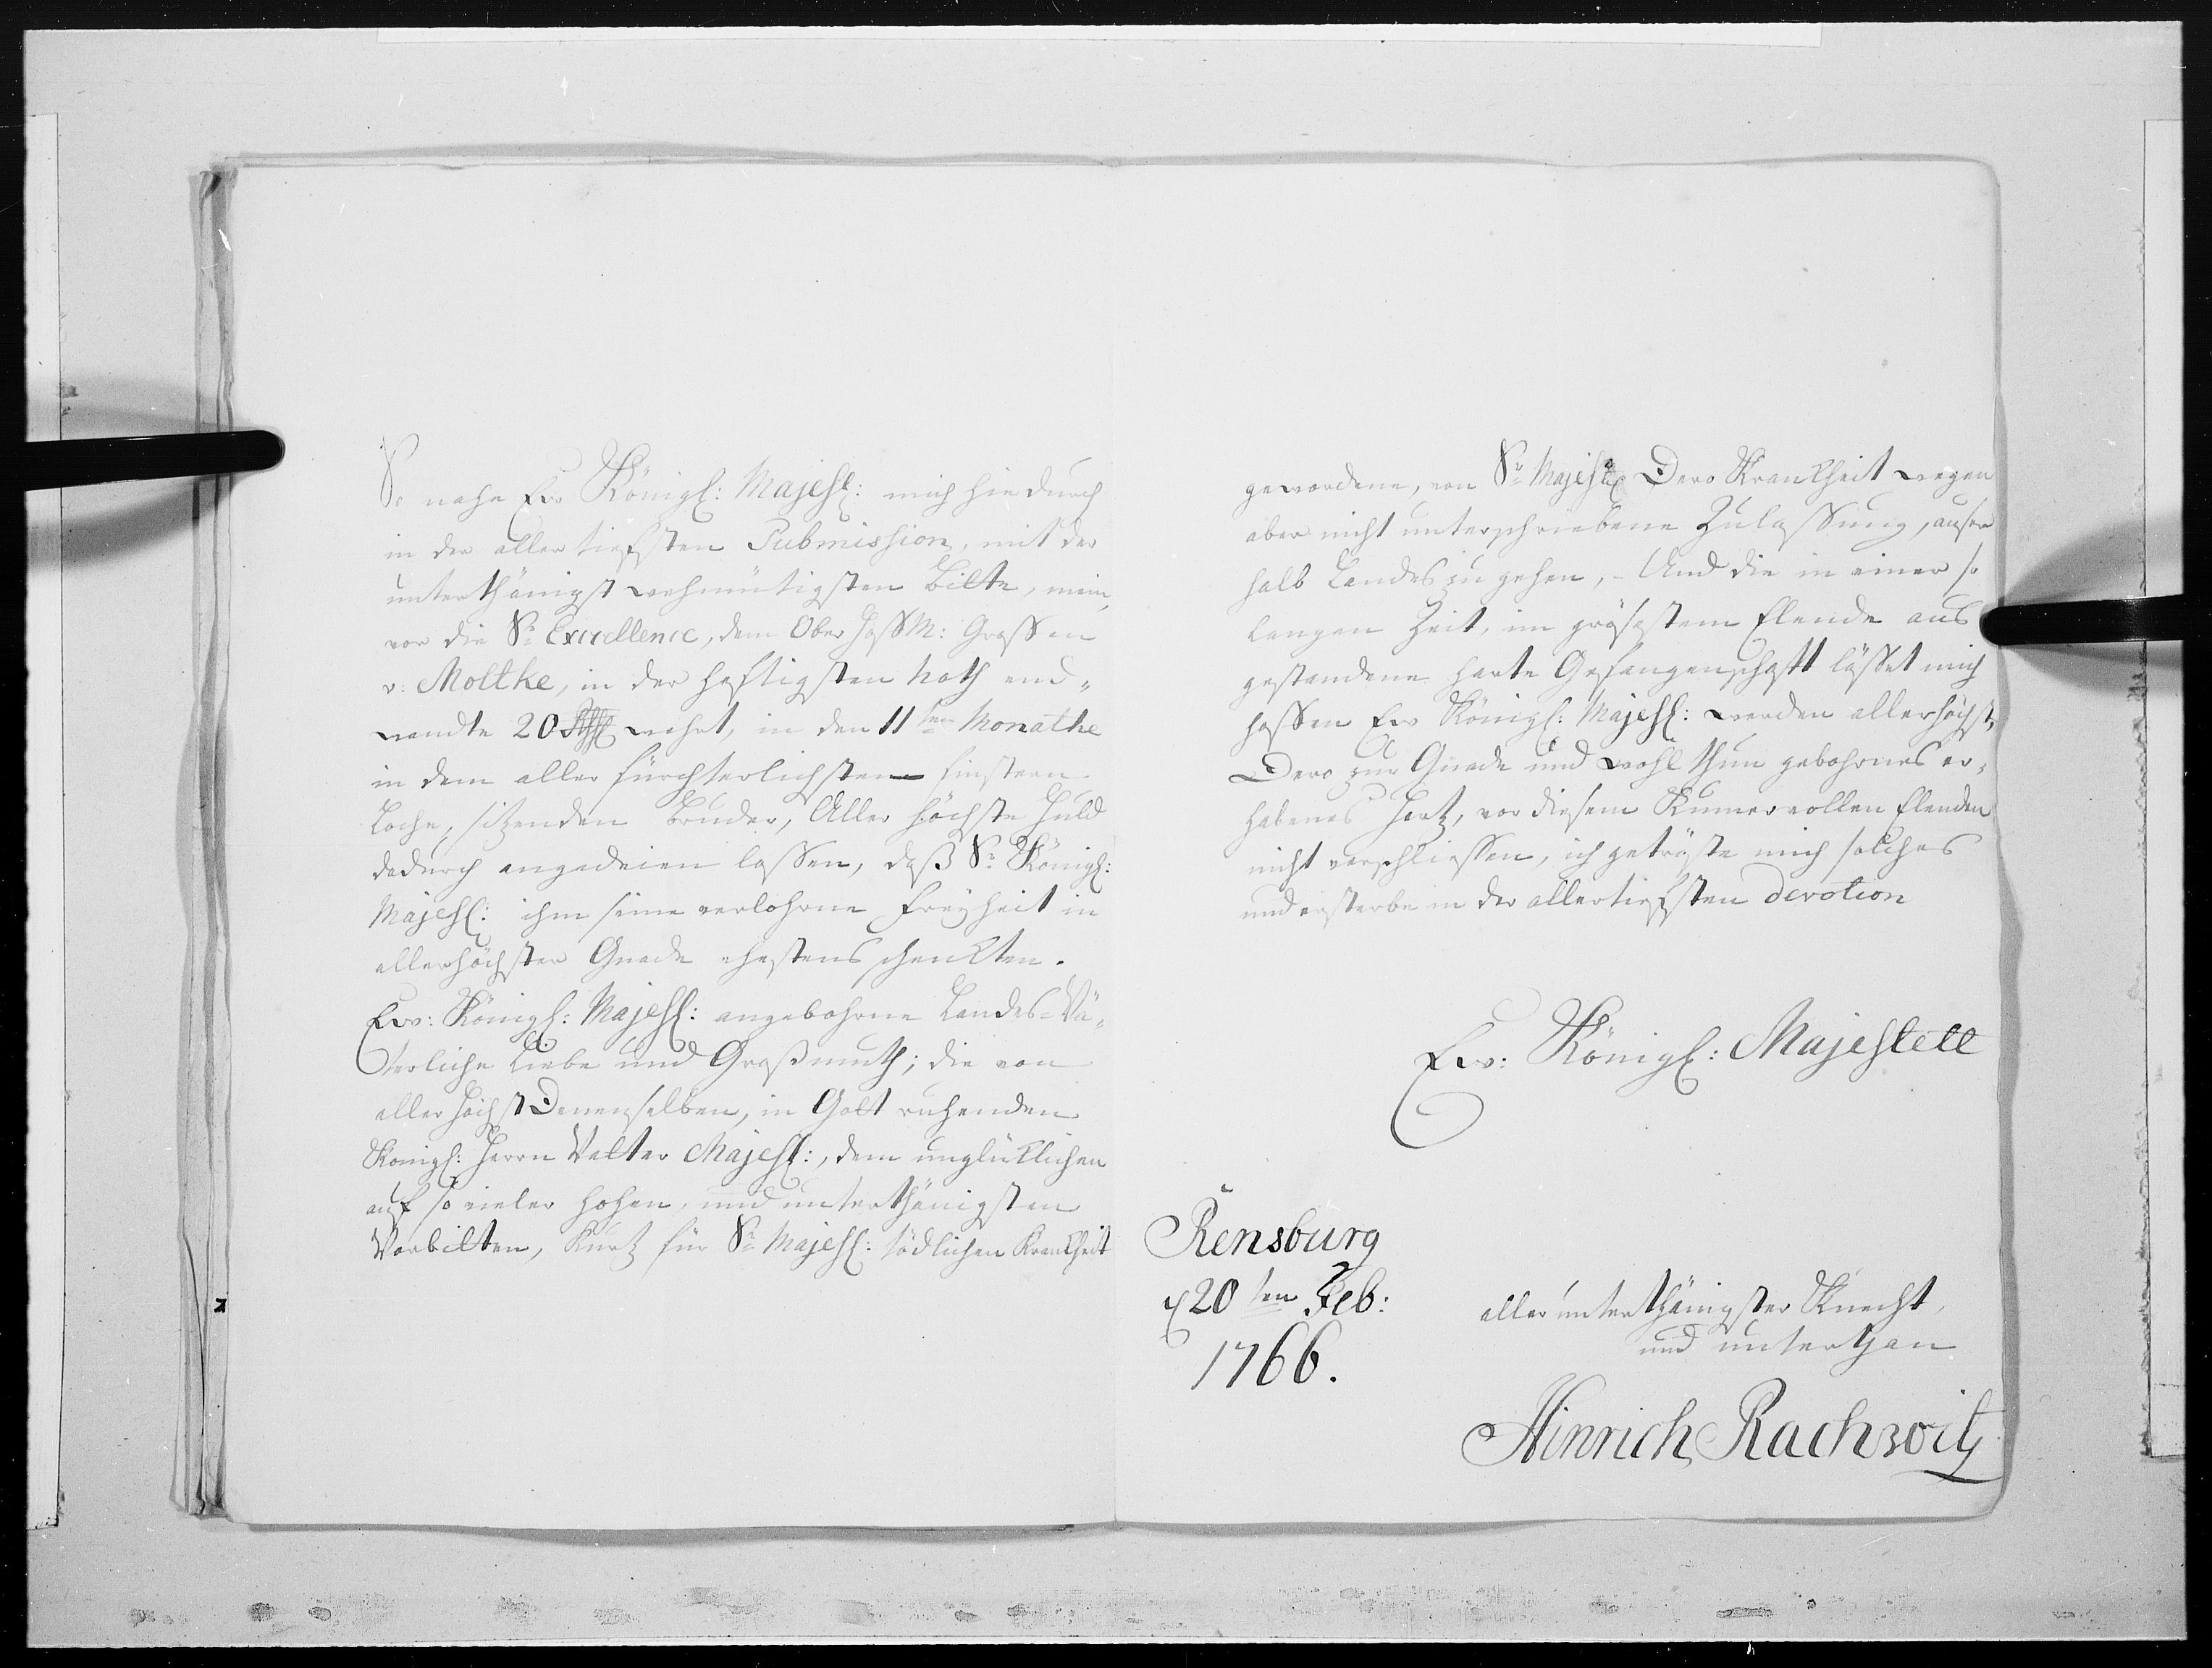 So nahe Ew Königl: Majest: mich hiedurch
in der aller tiefsten Submission, mit der
unterthänigst wehmütigsten Bitte, mein,
vor die Sr Excellence, dem Ober Hoff M: Graffen
v: Moltke, in der hefftigsten Noth end-
wandte 20 Rthl wehrt, in den 11ten Monathe
in dem aller fürchterlichsten finstern
Loche, sitzenden Bruder, Aller höchste Huld
dadurch angedeien lassen, daß Sr Königl:
Majest: ihm seine verlohrne Freyheit in
allerhöchster Gnade ehestens schenkten.
Ew: Königl: Majest: angebohrne Landes-Vä-
terliche Liebe und Großmuth; die von
aller höchst Denenselben, in Gott ruhenden
Königl: Herrn Vatter Majest:, dem unglücklichen
auf so vieler hohen, und unterthänigsten
Vorbitten, Kurtz für Sr Majest: tödlichen Krankheit
gewordene, von Sr Majest: Dero Krankheit wegen
aber nicht unterschriebene Zulassung, auser
halb Landes zu gehen, - Und die in einer so
langen Zeit, im grösestem Elende aus
gestandene harte Gefangenschafft lässet mich
hoffen Ew Königl: Majest: werden allerhöchst,
Dero zur Gnade und wohl thun gebohrnes er-
habenes Hertz, vor diesem Kumervollen Elenden
nicht verschliessen, ich getröste mich solches
und ersterbe in der allertiefsten devotion
Ew: Königl: Majestett
Rensburg
d 20ten Feb:
1766.
aller unterthänigster Knecht,
und unterthan
Hinrich Rachwitz